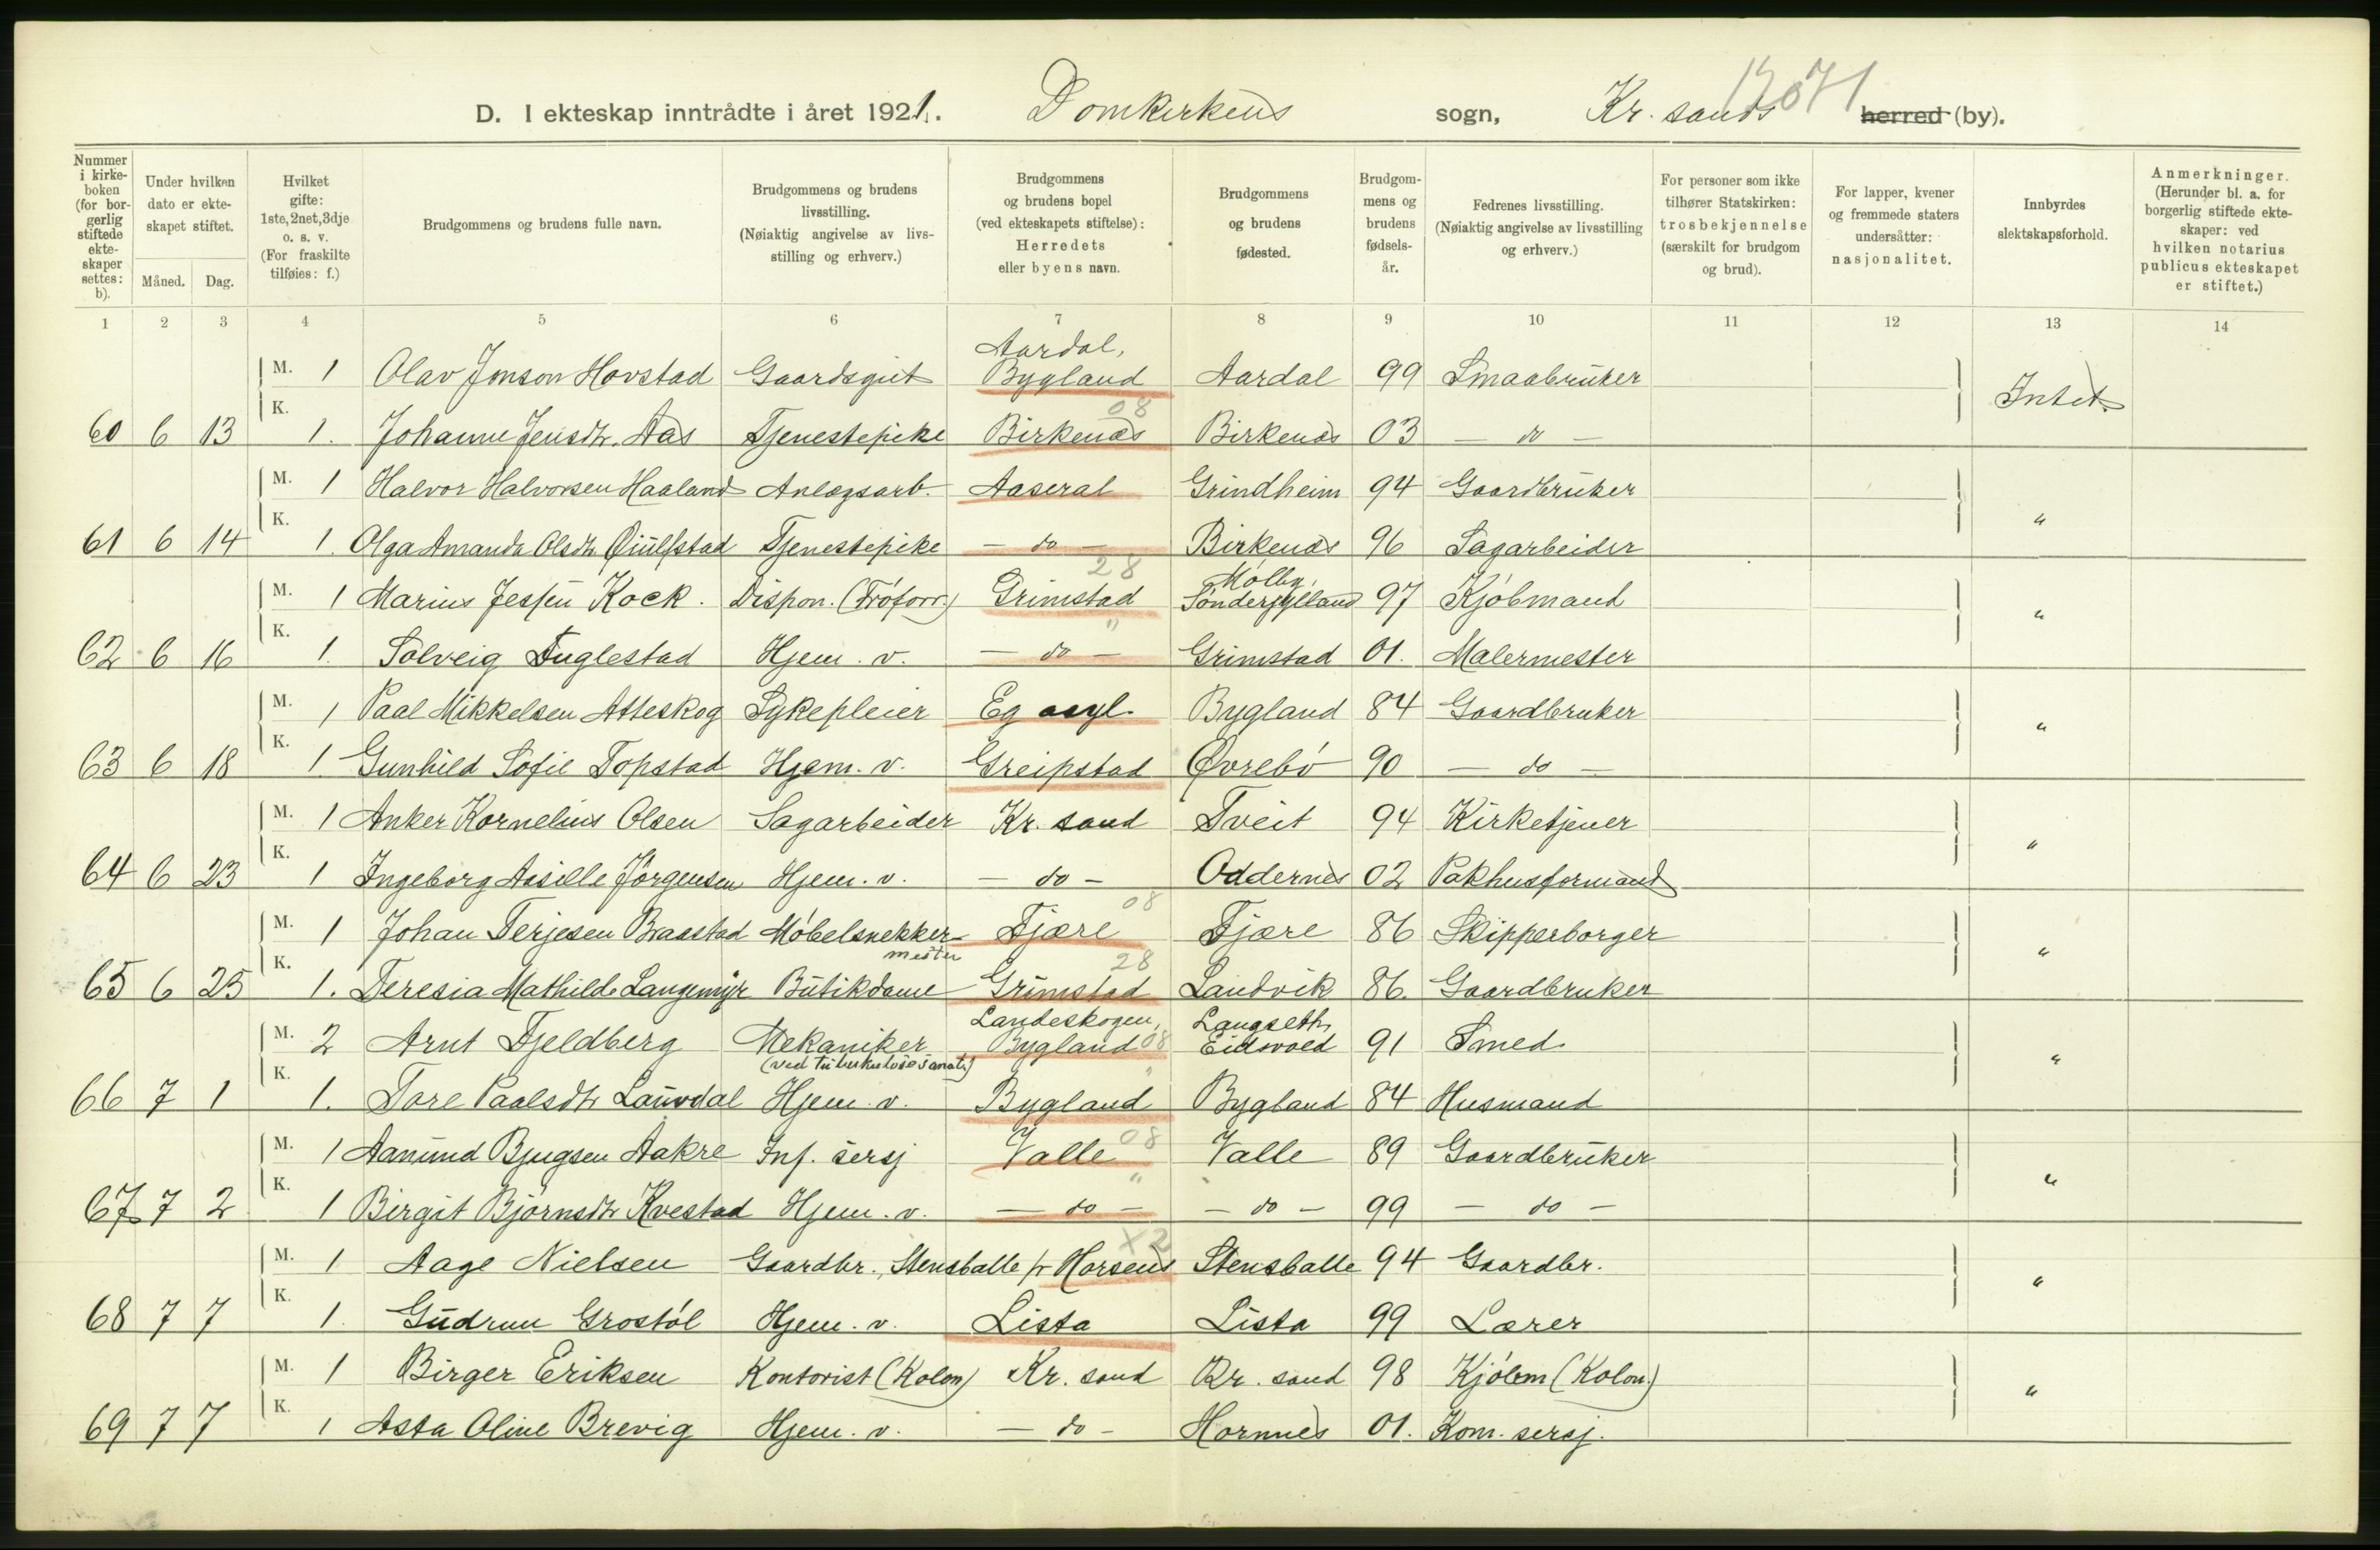 D. I ekteskap inntrådte i året 1921. Domkirkens sogn, Kr. sands herred (by).
Nummer i kirkeboken (for borgerlig stiftede ekteskaper settes: b).
Under hvilken dato er ekteskapet stiftet.
Måned. Dag.
Hvilket gifte: 1ste, 2net, 3dje o. s. v. (For fraskilte tilføies: f.)
Brudgommens og brudens fulle navn.
Brudgommens og brudens livsstilling. (Nøiaktig angivelse av livsstilling og erhverv.)
Brudgommens og brudens bopel (ved ekteskapets stiftelse): Herredets eller byens navn.
Brudgommens og brudens fødested.
Brudgommens og brudens fødselsår.
Fedrenes livsstilling. (Nøiaktig angivelse av livsstilling og erhverv.)
For personer som ikke tilhører Statskirken: trosbekjennelse (særskilt for brudgom og brud).
For lapper, kvener og fremmede staters undersåtter: nasjonalitet.
Innbyrdes slektskapsforhold.
Anmerkninger. (Herunder bl. a. for borgerlig stiftede ekteskaper: ved hvilken notarius publicus ekteskapet er stiftet.)
1 2 3 4 5 6 7 8 9 10 11 12 13 14
M. 1 Olav Jonson Hovstad Gaardsgut Aardal, Bygland Aardal 99 Smaabruker Intet.
08
60 6 13 K. 1. Johanne Jensdtr. Aas Tjenestepike Birkenæs Birkenæs 03 — do —
M. 1 Halvor Halvorsen Haaland Anlægsarb. Aaseral Grindheim 94 Gaardbruker "
61 6 14 K. 1. Olga Amanda Olsdtr. Øiulfstad Tjenestepike — do — Birkenæs 96 Sagarbeider
28
M. 1 Marius Jessen Kock. Dispon. (Frøforr.) Grimstad Mølby, Sønderjylland 97 Kjøbmand "
62 6 16 K. 1. Solveig Fuglestad Hjem. v. — do — Grimstad 01. Malermester
M. 1 Paal Mikkelsen Atteskog Sykepleier Eg asyl. Bygland 84 Gaardbruker "
63 6 18 K. 1. Gunhild Sofie Topstad Hjem. v. Greipstad Øvrebø 90 — do —
M. 1 Anker Kornelius Olsen Sagarbeider Kr. sand Tveit 94 Kirketjener "
64 6 23 K. 1 Ingeborg Aasille Jørgensen Hjem. v. — do — Oddernes 02 Pakhusformand
08
M. 1 Johan Terjesen Braastad Møbelsnekkermester Fjære Fjære 86 Skipperborger "
28
65 6 25 K. 1. Teresia Mathilde Langemyr Butikdame Grimstad Landvik 86. Gaardbruker
M. 2 Arnt Fjeldberg Mekaniker (ved tuberkulosesanat.) Landeskogen, Bygland 08 Langseth, Eidsvold 91 Smed. "
66 7 1 K. 1. Tore Paalsdtr. Lauvdal Hjem. v. Bygland Bygland 84 Husmand
M. 1 Aanund Bjugsen Aakre Inf. sersj Valle 08 Valle 89 Gaardbruker "
67 7 2 K. 1 Birgit Bjørnsdtr. Kvestad Hjem. v. — do — — do — 99 — do —
X2
M. 1 Aage Nielsen Gaardbr., Stensballe pr Horsens Stensballe 94 Gaardbr. "
68 7 7 K. 1. Gudrun Grostøl Hjem. v. Lista Lista 99 Lærer
M. 1 Birger Eriksen Kontorist (Kolon) Kr. sand Kr. sand 98 Kjøbm (Kolon.) "
69 7 7 K. 1 Asta Oline Brevig Hjem. v. — do — Hornnes 01. Kom. sersj.